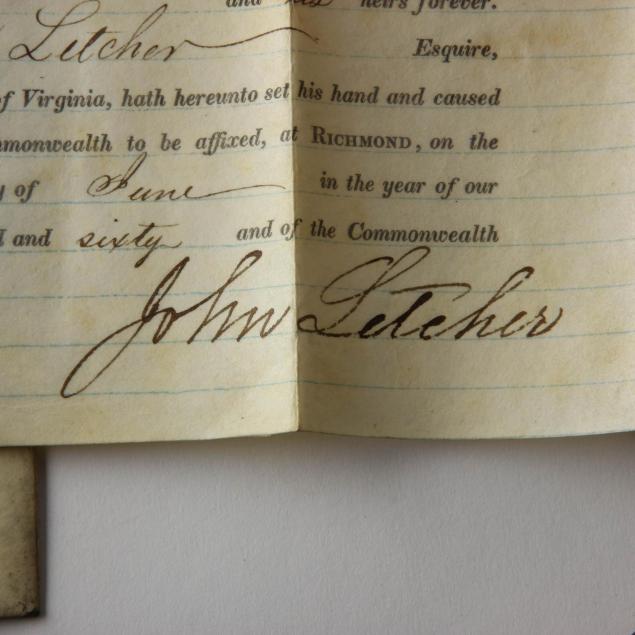 and his heirs forever.
Letcher Esquire,
of Virginia, hath hereunto set his hand and caused
mmonwealth to be affixed, at RICHMOND, on the
y of June in the year of our
d and sixty and of the Commonwealth
John Letcher